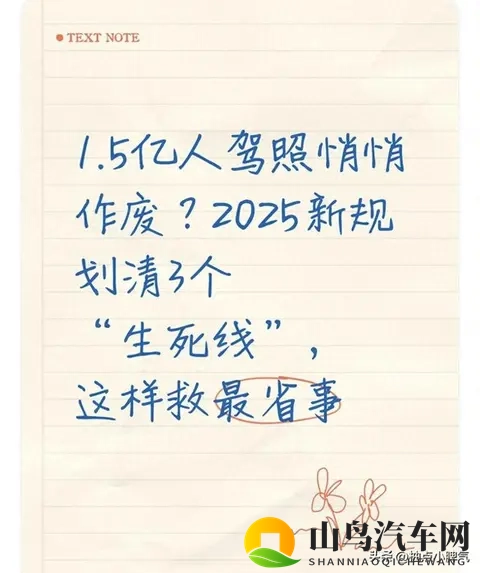 TEXT NOTE
1.5亿人驾照悄悄
作废？2025新规
划清3个
“生死线”，
这样救最省事
山鸟汽车网
SHANNIAOQICHEWANG